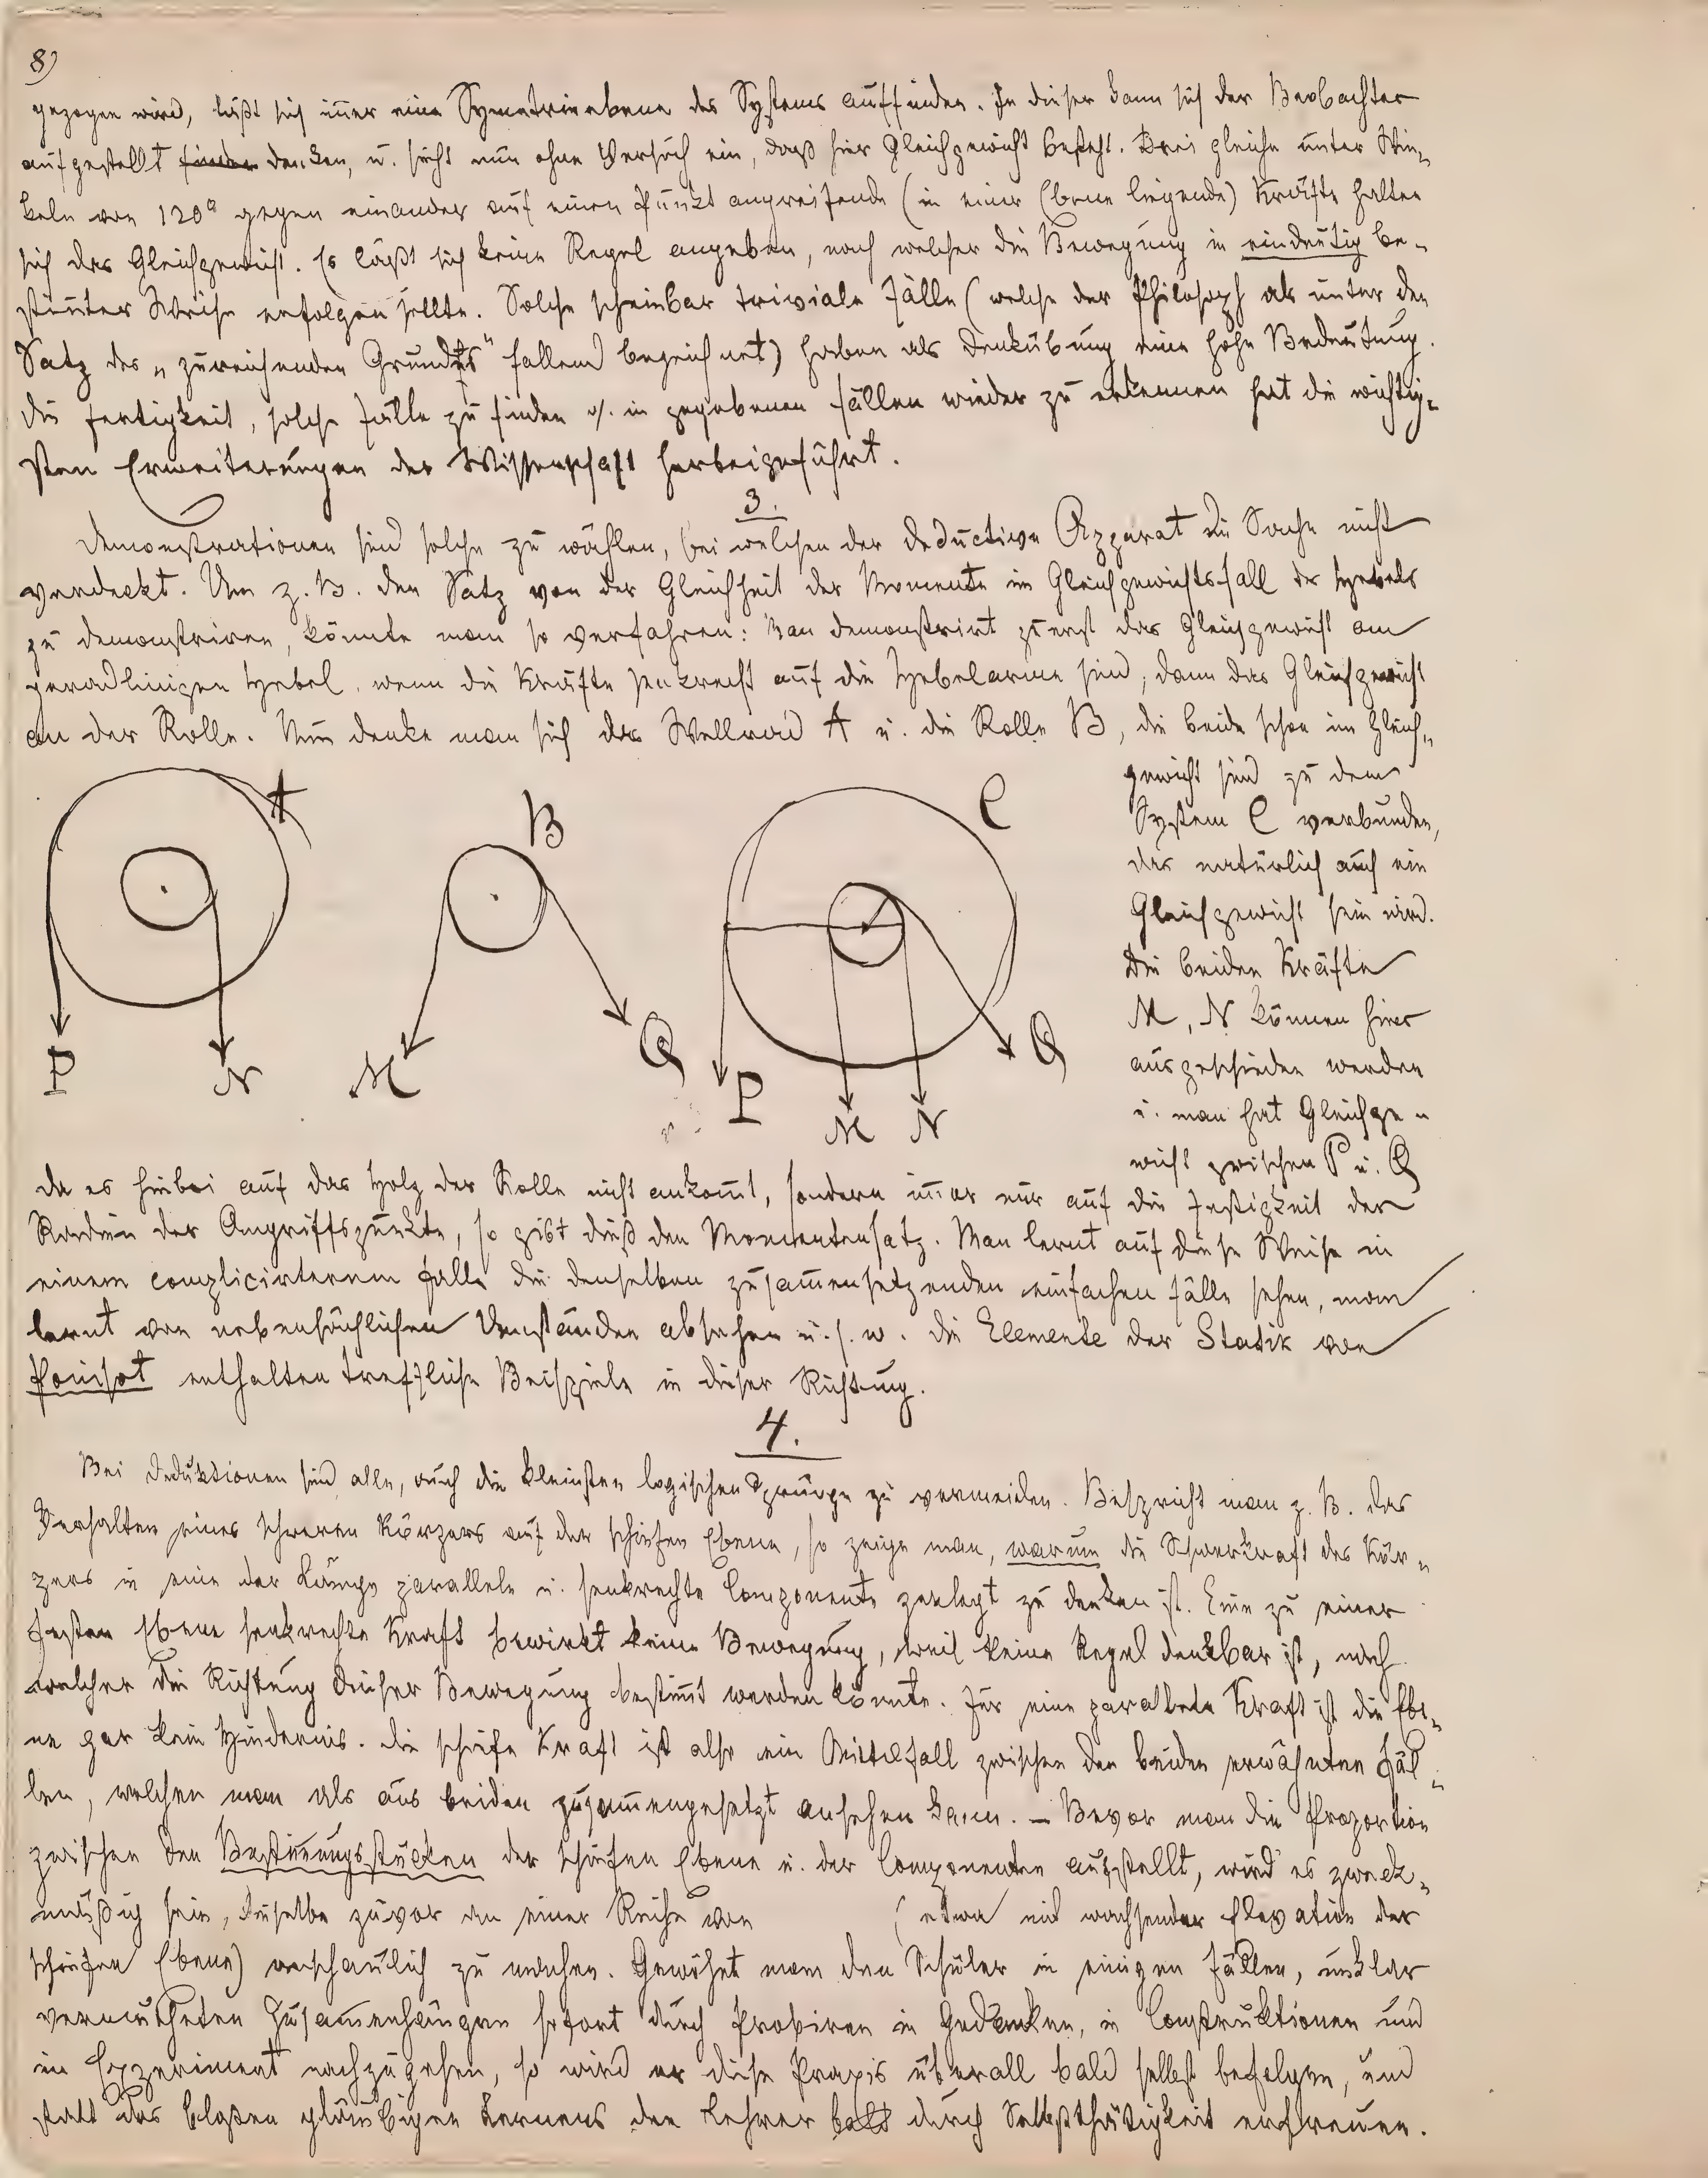 8)
gezogen wird, läßt sich im̄er eine Symetrieebene des Systems auffinden. In dieser kann sich der Beobachter
aufgestellt finden denken, u. sieht nun ohne Versuch ein, daß hier Gleichgewicht besteht. Drei gleiche unter Win„
keln von 120° gegen einander auf einen Punkt angreifende (in einer Ebene liegende) Kräfte halten
sich das Gleichgewicht. Es läßt sich keine Regel angeben, nach welcher die Bewegung in eindeutig be„
stim̄ter Weise erfolgen sollte. Solche scheinbar triviale Fälle (welche der Philosoph als unter den
Satz des „zureichenden Grundes" fallend bezeichnet) haben als Denkübung eine hohe Bedeutung.
Die Fertigkeit, solche Fälle zu finden u. in gegebenen Fällen wieder zu erkennen hat die wichtig„
sten Erweiterungen der Wissenschaft herbeigeführt.
3.
Demonstrationen sind solche zu wählen, bei welchen der deductive Apparat die Sache nicht
verdeckt. Um z. B. den Satz von der Gleichheit der Momente im Gleichgewichtsfall des Hebels
zu demonstriren, könnte man so verfahren: Man demonstrirt zuerst das Gleichgewicht am
geradlinigen Hebel, wenn die Kräfte senkrecht auf die Hebelarme sind, dann das Gleichgewicht
an der Rolle. Nun denke man sich das Wellrad A u. die Rolle B, die beide schon im Gleich„
gewicht sind zu dem
System C verbunden,
das natürlich auch ein
Gleichgewicht sein wird.
Die beiden Kräfte
M, N können hier
ausgeschieden werden
u. man hat Gleichge„
wicht zwischen P u. Q
A
B
C
P
N
M
Q
P
M
N
Q
da es hiebei auf das Holz der Rolle nicht ankom̄t, sondern im̄er nur auf die Festigkeit der
Radien der Angriffspunkte, so gibt dieß den Momentensatz. Man lernt auf diese Weise in
einem complicirterem Falle die denselben zusam̄ensetzenden einfachen Fälle sehen, man
lernt von nebensächlichen Umständen absehen u. s. w. Die Elemente der Statik von
Poinsot enthalten treffliche Beispiele in dieser Richtung.
4.
Bei Deduktionen sind alle, auch die kleinsten logischen Sprünge zu vermeiden. Bespricht man z. B. das
Verhalten eines schweren Körpers auf der schiefen Ebene, so zeige man, warum die Schwerkraft des Kör„
pers in eine der Länge parallele u. senkrechte Componente zerlegt zu denken ist. Eine zu einer
festen Ebene senkrechte Kraft bewirkt keine Bewegung, weil keine Regel denkbar ist, nach
welcher die Richtung dieser Bewegung bestim̄t werden könnte. Für eine parallele Kraft ist die Ebe„
ne gar kein Hindernis. Die schiefe Kraft ist also ein Mittelfall zwischen den beiden erwähnten Fäl„
len, welchen man als aus beiden zusam̄engesetzt ansehen kann. – Bevor man die Proportion
zwischen den Bestim̄ungsstücken der schiefen Ebene u. der Componenten aufstellt, wird es zweck„
mäßig sein, dieselbe zuvor an einer Reihe von (etwa mit wachsender Elevation der
schiefen Ebene) anschaulich zu machen. Gewöhnt man den Schüler in einigen Fällen, unklar
vermutheten Zusam̄enhängen sofort durch Probiren in Gedanken, in Construktionen und
im Experiment nachzugehen, so wird er diese Praxis überall bald selbst befolgen, und
statt des bloßen gläubigen Lernens den Lehrer bald durch Selbstthätigkeit erfreuen.